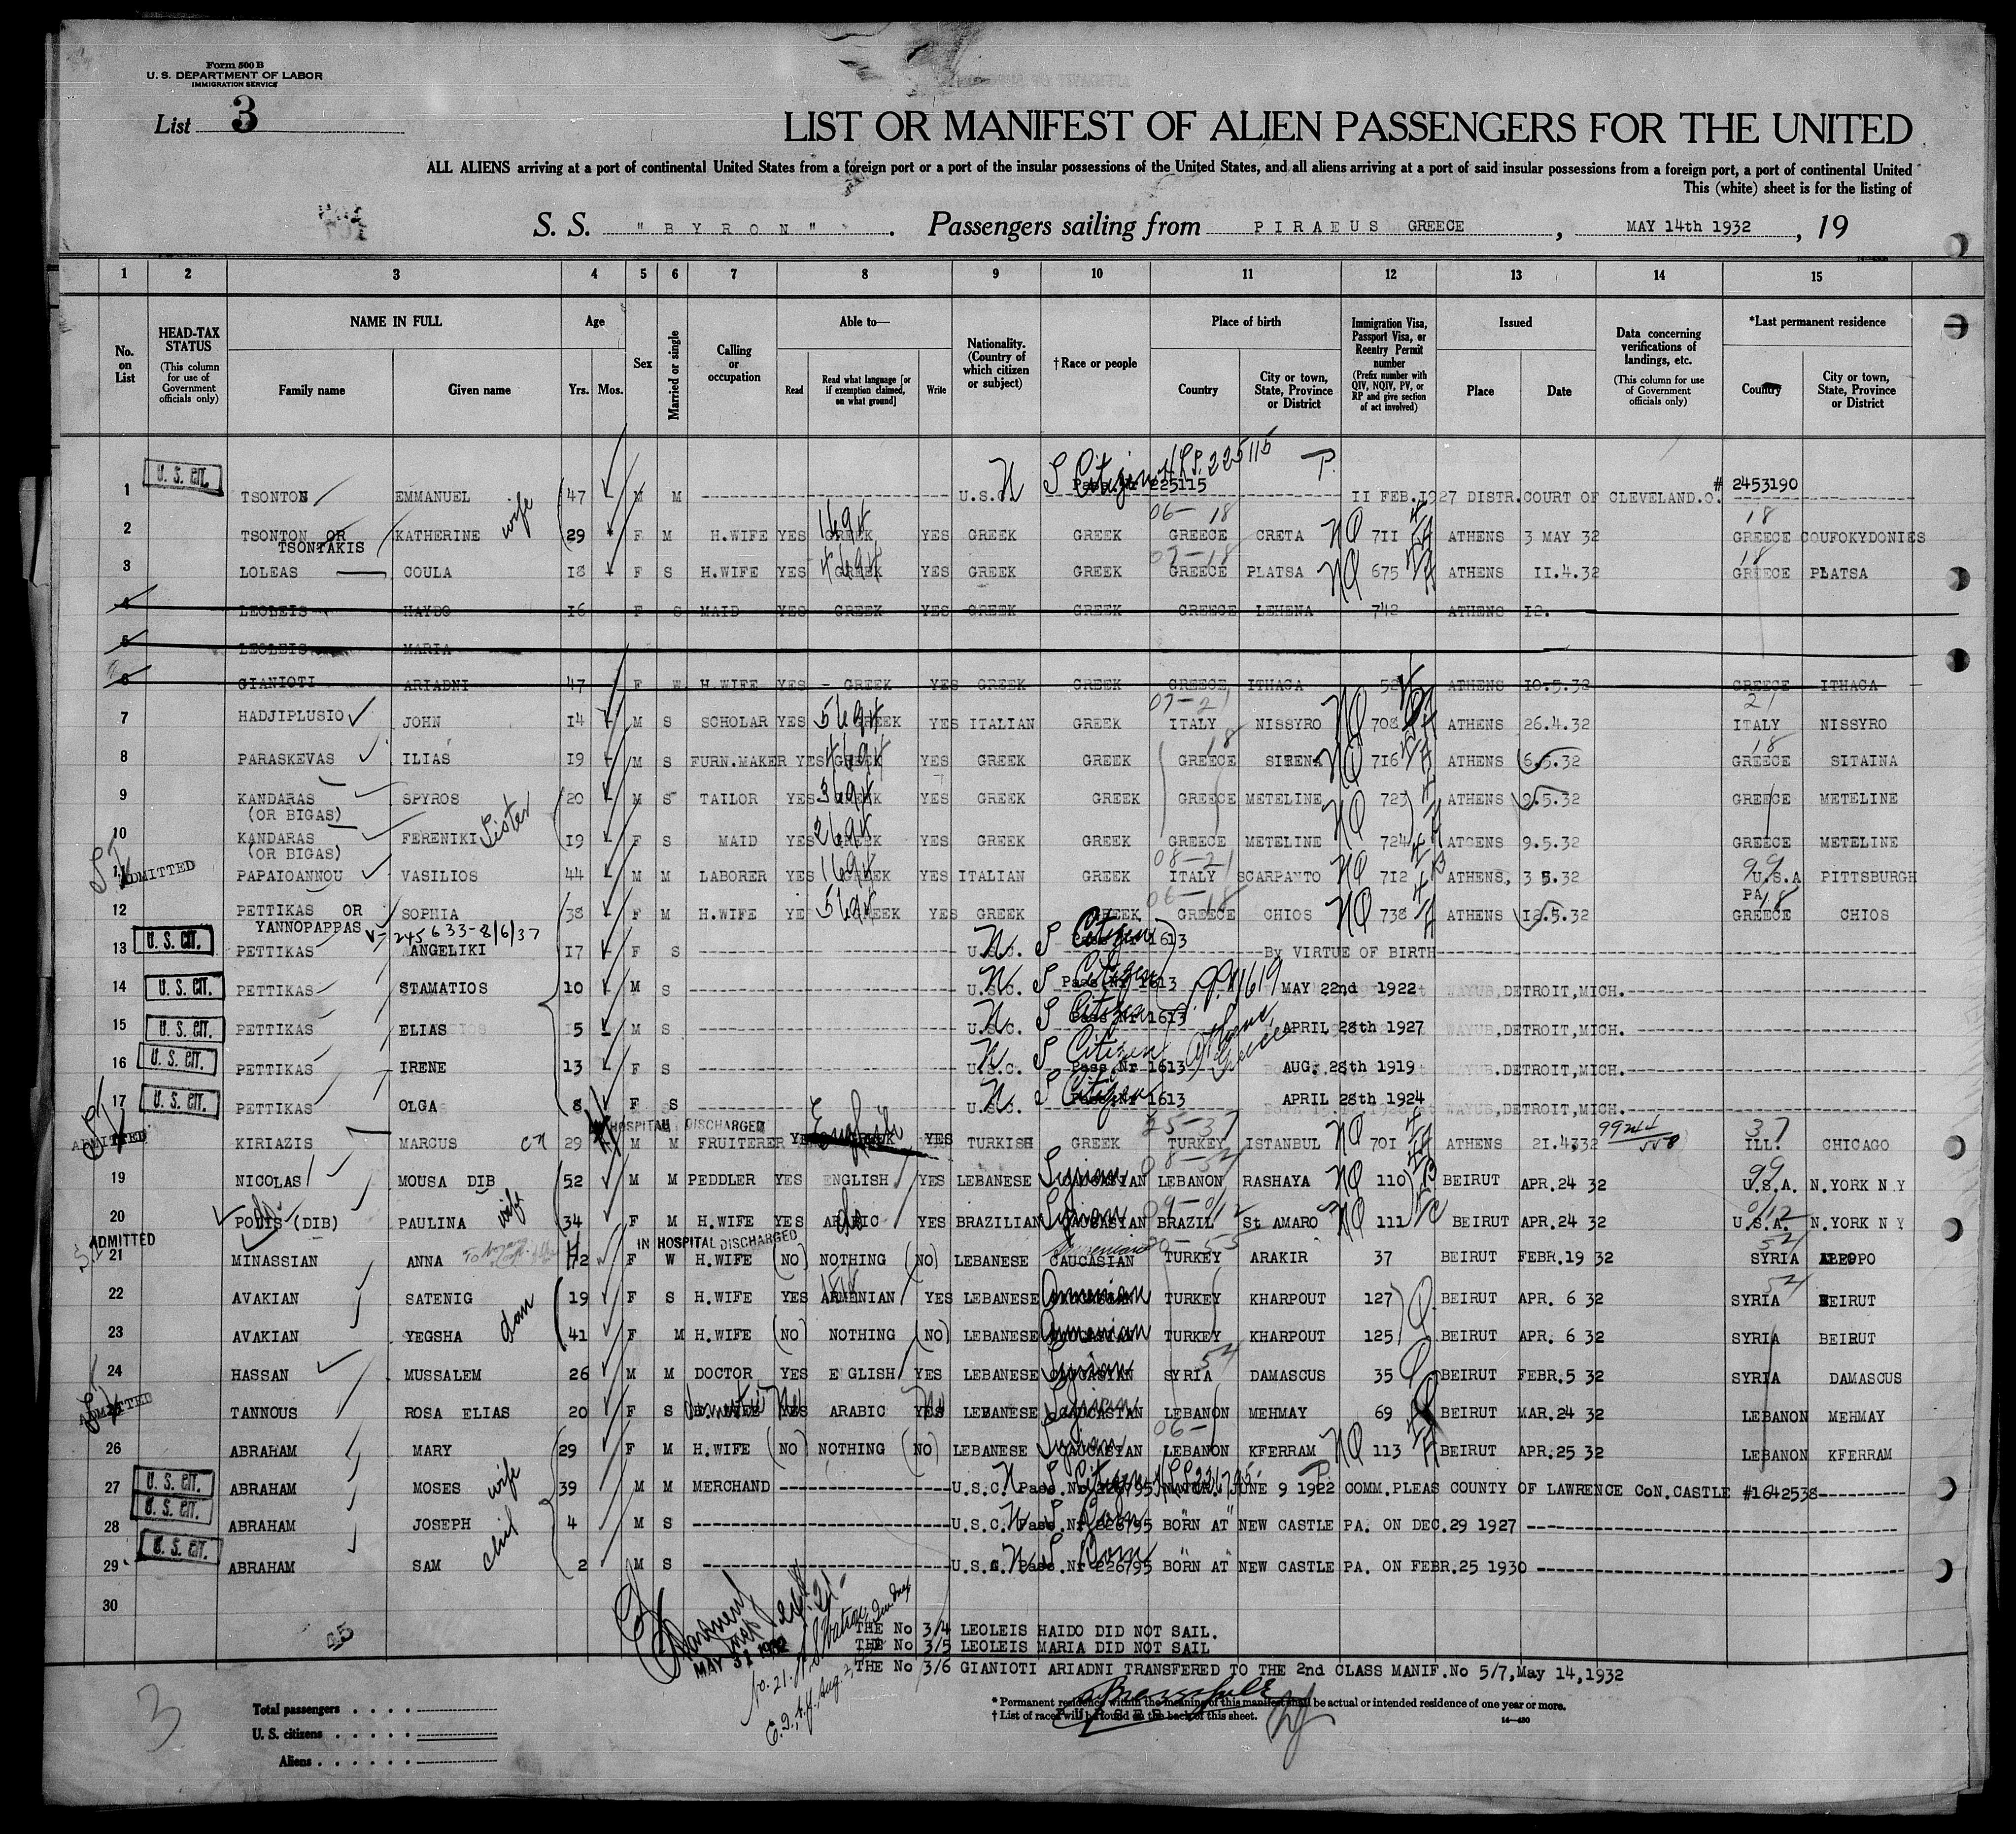 Form 500 B
U. S. DEPARTMENT OF LABOR
IMMIGRATION SERVICE
List 3
LIST OR MANIFEST OF ALIEN PASSENGERS FOR THE UNITED
ALL ALIENS arriving at a port of continental United States from a foreign port or a port of the insular possessions of the United States, and all aliens arriving at a port of said insular possessions from a foreign port, a port of continental United
This (white) sheet is for the listing of
S. S. "BYRON". Passengers sailing from PIRAEUS GREECE, MAY 14th 1932, 19
1 2 3 4 5 6 7 8 9 10 11 12 13 14 15
No. on List
HEAD-TAX STATUS (This column for use of Government officials only)
NAME IN FULL Family name Given name
Age Yrs. Mos.
Sex
Married or single
Calling or occupation
Able to— Read Read what language [or if exemption claimed, on what ground] Write
Nationality. (Country of which citizen or subject)
†Race or people
Place of birth Country City or town, State, Province or District
Immigration Visa, Passport Visa, or Reentry Permit number (Prefix number with QIV, NQIV, PV, or RP and give section of act involved)
Issued Place Date
Data concerning verifications of landings, etc. (This column for use of Government officials only)
*Last permanent residence Country City or town, State, Province or District
1 U. S. CIT. TSONTON EMMANUEL 47 M M U.S.C. U S Citizen Pass. Nr 225115 11 FEB. 1927 DISTR. COURT OF CLEVELAND.O. # 2453190
2 TSONTON OR TSONTAKIS KATHERINE wife 29 F M H.WIFE YES GREEK YES GREEK GREEK GREECE CRETA NQ 711 ATHENS 3 MAY 32 GREECE COUFOKYDONIES
3 LOLEAS COULA 18 F S H.WIFE YES GREEK YES GREEK GREEK GREECE PLATSA NQ 675 ATHENS 11.4.32 GREECE PLATSA
4 LEOLEIS HAYDO 16 F S MAID YES GREEK YES GREEK GREEK GREECE LEHENA 742 ATHENS 12.
5 LEOLEIS MARIA
6 GIANIOTI ARIADNI 47 F W H.WIFE YES - GREEK YES GREEK GREEK GREECE ITHACA ATHENS 10.5.32 GREECE ITHACA
7 HADJIPLUSIO JOHN 14 M S SCHOLAR YES GREEK YES ITALIAN GREEK ITALY NISSYRO NQ 708 ATHENS 26.4.32 ITALY NISSYRO
8 PARASKEVAS ILIAS 19 M S FURN.MAKER YES GREEK YES GREEK GREEK GREECE NQ 716 ATHENS 6.5.32 GREECE SITAINA
9 KANDARAS (OR BIGAS) SPYROS 20 M S TAILOR YES GREEK YES GREEK GREEK GREECE METELINE NQ 723 ATHENS 9.5.32 GREECE METELINE
10 KANDARAS (OR BIGAS) FERENIKI Sister 19 F S MAID YES GREEK YES GREEK GREEK GREECE METELINE 724 ATCENS 9.5.32 GREECE METELINE
11 ADMITTED PAPAIOANNOU VASILIOS 44 M M LABORER YES GREEK YES ITALIAN GREEK ITALY SCARPANTO NQ 712 ATHENS, 3 5.32 U.S.A PA PITTSBURGH
12 PETTIKAS OR YANNOPAPPAS SOPHIA 38 F M H.WIFE YE GREEK YES GREEK GREEK GREECE CHIOS NQ 738 ATHENS 12.5.32 GREECE CHIOS
245633-8/6/37
13 U. S. CIT. PETTIKAS ANGELIKI 17 F S U.S.C. U S Citizen Pass Nr 1613 By VIRTUE OF BIRTH
14 U. S. CIT. PETTIKAS STAMATIOS 10 M S U.S.C. U S Citizen Pass Nr 1613 MAY 22nd 1922 WAYUB, DETROIT, MICH.
15 U. S. CIT. PETTIKAS ELIAS 5 M S U.S.C. U S Citizen Pass Nr 1613 APRIL 28th 1927 WAYUB, DETROIT, MICH.
16 U. S. CIT. PETTIKAS IRENE 13 F S U.S.C. U S Citizen Pass Nr 1613 AUG. 28th 1919 WAYUB. DETROIT, MICH.
17 U. S. CIT. PETTIKAS OLGA 8 F S U.S.C. U S Citizen 1613 APRIL 28th 1924 WAYUB, DETROIT, MICH.
Athens, Greece
HOSPITAL DISCHARGED
ADMITTED KIRIAZIS MARCUS 29 M M FRUITERER English YES TURKISH GREEK TURKEY ISTANBUL NQ 701 ATHENS 21.4.32 ILL. CHICAGO
19 NICOLAS MOUSA DIB 52 M M PEDDLER YES ENGLISH YES LEBANESE Syrian CAUCASIAN LEBANON RASHAYA NQ 110 BEIRUT APR.24 32 U.S.A. N.YORK N Y
20 POUIS (DIB) PAULINA wife 34 F M H.WIFE YES ARABIC YES BRAZILIAN Syrian CAUCASIAN BRAZIL St AMARO NQ 111 BEIRUT APR.24 32 U.S.A. N.YORK N Y
ADMITTED IN HOSPITAL DISCHARGED
21 MINASSIAN ANNA F W H.WIFE (NO) NOTHING (NO) LEBANESE Armenian CAUCASIAN TURKEY ARAKIR 37 BEIRUT FEBR.19 32 SYRIA ALEPPO
22 AVAKIAN SATENIG 19 F S H.WIFE YES ARMENIAN YES LEBANESE Armenian TURKEY KHARPOUT 127 BEIRUT APR. 6 32 SYRIA BEIRUT
23 AVAKIAN YEGSHA 41 F M H.WIFE (NO) NOTHING (NO) LEBANESE Armenian TURKEY KHARPOUT 125 BEIRUT APR. 6 32 SYRIA BEIRUT
24 HASSAN MUSSALEM 26 M M DOCTOR YES ENGLISH YES LEBANESE Syrian CAUCASIAN SYRIA DAMASCUS 35 BEIRUT FEBR.5 32 SYRIA DAMASCUS
ADMITTED TANNOUS ROSA ELIAS 20 F S No ARABIC No LEBANESE Syrian CAUCASIAN LEBANON MEHMAY 69 BEIRUT MAR.24 32 LEBANON MEHMAY
26 ABRAHAM MARY 29 F M H.WIFE (NO) NOTHING (NO) LEBANESE Syrian CAUCASIAN LEBANON KFERRAM NQ 113 BEIRUT APR.25 32 LEBANON KFERRAM
27 U. S. CIT. ABRAHAM MOSES wife 39 M M MERCHAND U.S.C. U S Citizen Pass. Nr 226795 NATUR. JUNE 9 1922 COMM.PLEAS COUNTY OF LAWRENCE CoN.CASTLE #1642538
28 U. S. CIT. ABRAHAM JOSEPH 4 M S U.S.C. U S Born Pass. Nr 226795 BORN AT NEW CASTLE PA. ON DEC.29 1927
29 U. S. CIT. ABRAHAM SAM 2 M S U.S. U S Born Pass. Nr 226795 BORN AT NEW CASTLE PA. ON FEBR.25 1930
30
MAY 31 1932
THE No 3/4 LEOLEIS HAIDO DID NOT SAIL.
THE No 3/5 LEOLEIS MARIA DID NOT SAIL
THE No 3/6 GIANIOTI ARIADNI TRANSFERED TO THE 2nd CLASS MANIF.No 5/7, May 14, 1932
PURSER
* Permanent residence within the meaning of this manifest shall be actual or intended residence of one year or more.
† List of races will be found on the back of this sheet.
14—430
3
Total passengers
U. S. citizens
Aliens